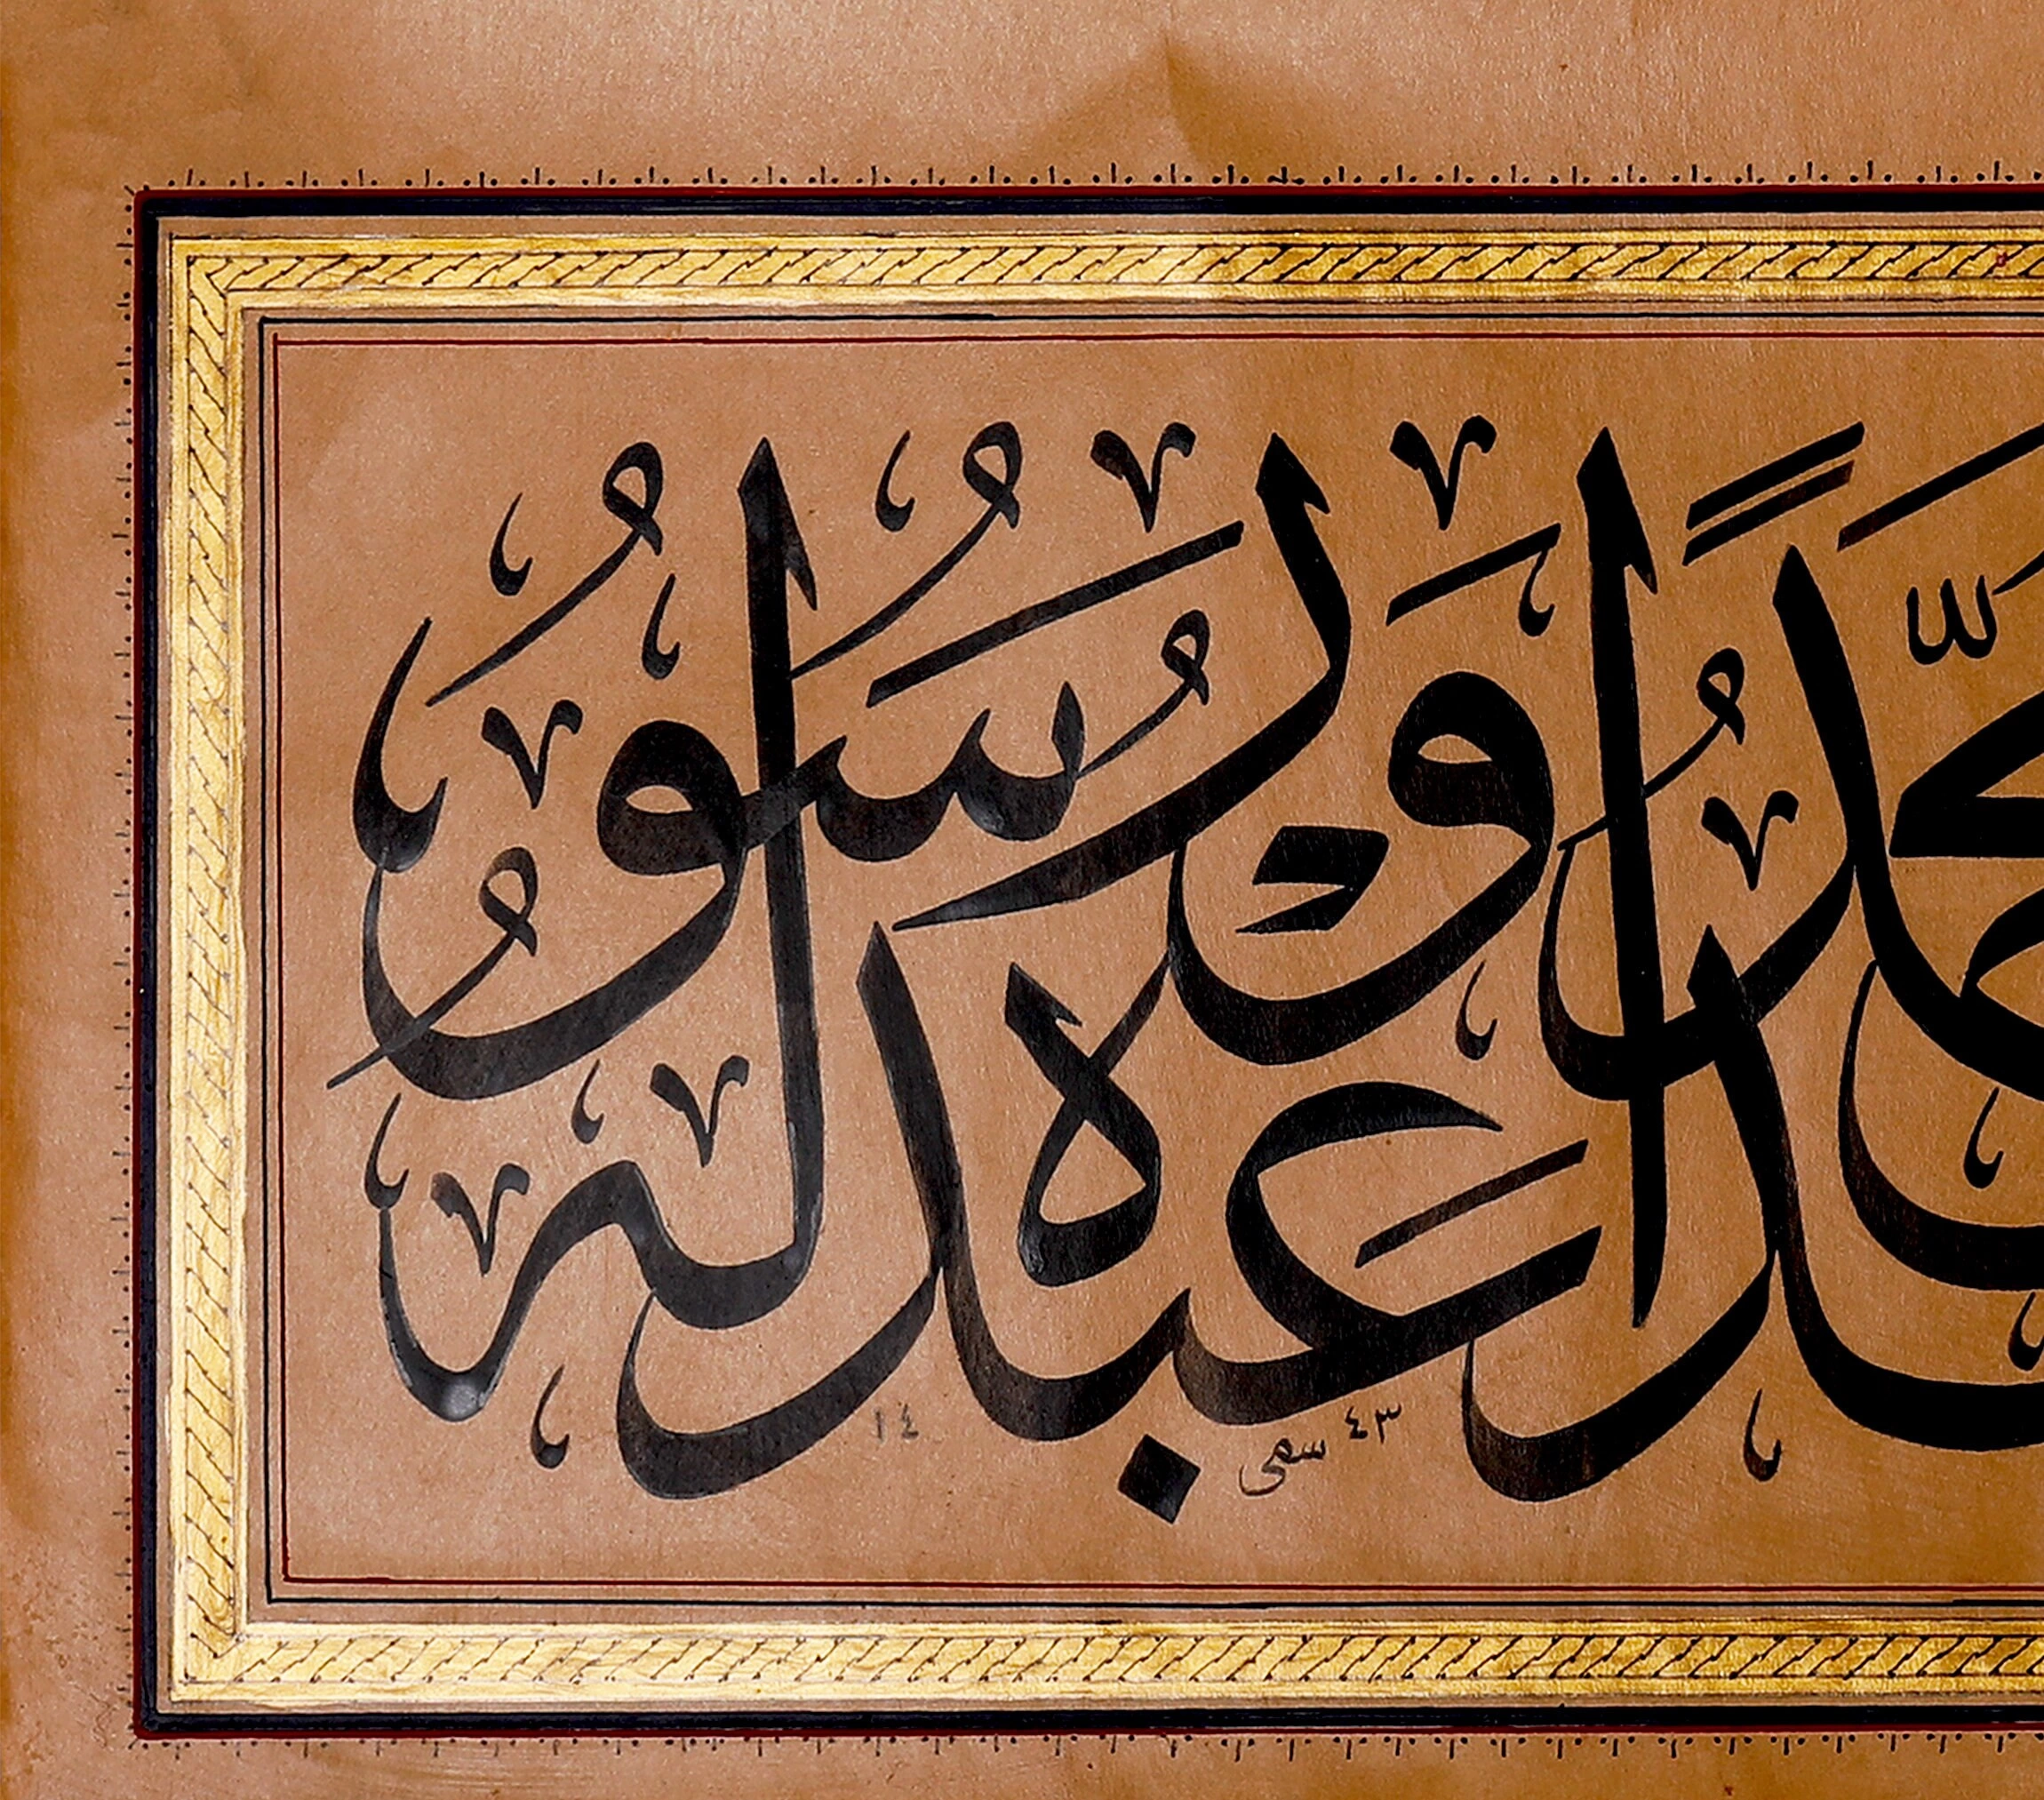 محمدًا عبده ورسوله
سمى ١٤٤٣